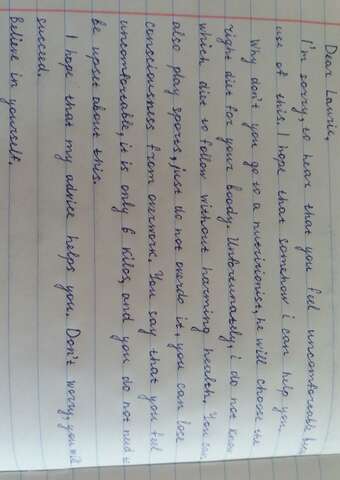 Dear Laurie,
I'm sorry, to hear that you feel uncomfortable bec
use of this. I hope that somehow i can help you
Why don't you go to a nutritionist, he will choose the
right diet for your boody. Unforeunately, i do not know
which diet to follow without harming health. You can
also play sports, just do not overdo it, you can lose
consciousness from overwork. You say that you feel
uncomfortable, it is only 6 kilos, and you do not need
be upset about this.
I hope that my advice helps you. Don't worry, you will
succeed.
Believe in yourself.